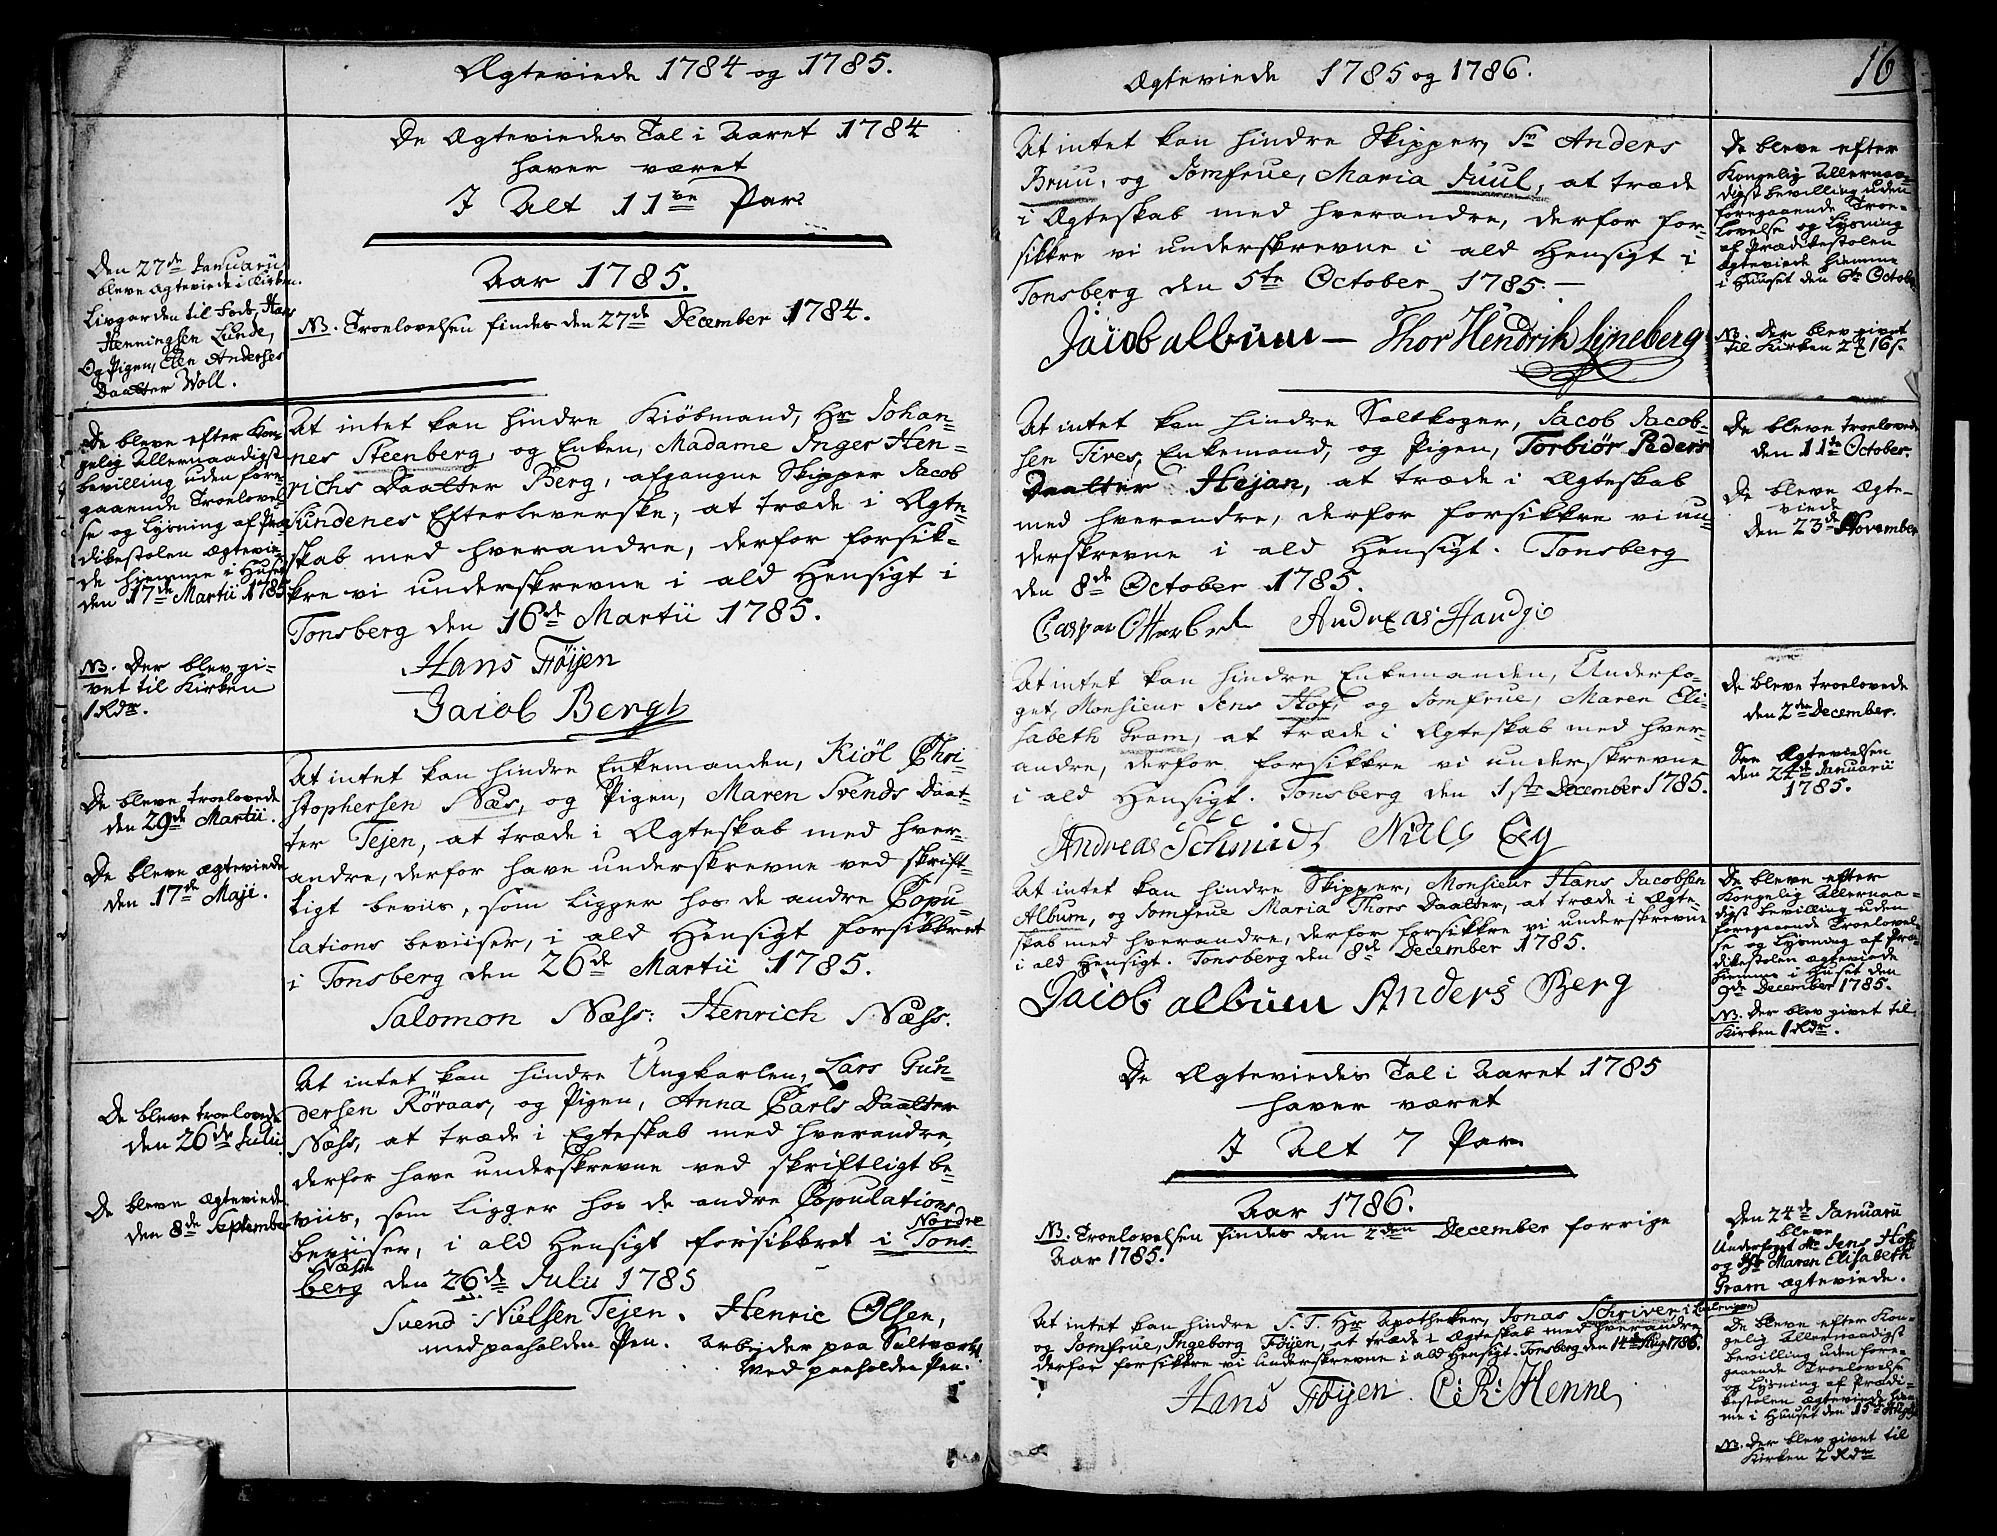 Ægteviede 1784 og 1785.
De Ægteviedes Tal i Aaret 1784
haver været
I Alt 11ve Par
Aar 1785.
Den 27de Januarii
bleve ægteviede i Kirken.
Livgarden til Fods, Hans
Henningsen Lunde,
Og Pigen, Elen Anderses
Daatter Woll.
NB. Troelovelsen findes den 27de December 1784.
De bleve efter Kon-
gelig Allernaadigst
bevilling uden fore-
gaaende Troelovel-
se og Lysning af Præ-
dikestolen ægtevie-
de hiemme i Huset
den 17de Martii 1785.
NB. Der blev gi-
vet til Kirken
1 Rdr.
At intet kan hindre Kiøbmand, Hr Johan-
nes Steenberg, og Enken, Madame Inger Hen-
richs Daatter Berg, afgangne Skipper Jacob
Lundenes Efterleverske, at træde i Ægte-
skab med hverandre, derfor forsik-
kre vi underskrevne i ald Hensigt i
Tonsberg den 16de Martii 1785.
Hans Føyen
Jaiob Bergh
De bleve troelovede
den 29de Martii.
De bleve ægteviede
den 17de Maji.
At intet kan hindre Enkemanden, Kiøl Chri-
stophersen Næs, og Pigen, Maren Svends Daat-
ter Tejen, at træde i Ægteskab med hver-
andre, derfor have underskrevne ved skrift-
ligt beviis, som ligger hos de andre Copu-
lations beviiser, i ald Hensigt forsikkret
i Tonsberg den 26de Martii 1785.
Salomon Næss: Henrich Næss.
De bleve troelovede
den 26de Julii
De bleve ægteviede
den 8de September
At intet kan hindre Ungkarlen, Lars Gun-
dersen Røraas, og Pigen, Anna Carls Daatter
Næss, at træde i Egteskab med hverandre,
derfor have underskrevne ved skriftligt be-
viis, som ligger hos de andre Copulations
Nordre
beviiser, i ald Hensigt forsikkret i Tons-
Næss
berg den 26de Julii 1785
Svend Nielsen Tejen. Henric Olsen,
med paaholden Pen. arbejder paa Saltværket.
Med paaholden Pen.
Ægteviede 1785 og 1786.
16
At intet kan hindre Skipper, Sr Anders
Bruu, og Jomfrue, Maria Juul, at træde
i Ægteskab med hverandre, derfor for-
sikkre vi underskrevne i ald Hensigt i
Tonsberg den 5te October 1785.
Jaiob album — Thor Hendrik Lyneberg
De bleve efter
Kongelig Allernaa-
digst bevilling uden
foregaaende Troe-
lovelse og Lysning
af Prædikestolen
ægteviede hiemme
i Huuset den 6te October
NB. Der blev givet
til Kirken
At intet kan hindre Saltkoger, Jacob Jacob-
sen Fires, Enkemand, og Pigen, Torbiør Peders
Daatter Hejan, at træde i Ægteskab
med hverandre, derfor forsikkre vi un-
derskrevne i ald Hensigt. Tonsberg
den 8de October 1785.
Caspar Otterbek Andreas Haugi
De bleve troelovede
den 11te October.
De bleve Ægte-
viede
den 23de November
At intet kan hindre Enkemanden, Underfo-
get, Monsieur Jens Hof, og Jomfrue, Maren Eli-
sabeth Gram, at træde i Ægteskab med hver-
andre, derfor forsikkre vi underskrevne
i ald Hensigt. Tonsberg den 1ste December 1785.
Andreas Schmidt Niels Eeg
De bleve troelovede
den 2den December.
See Ægtevielsen
den 24de Januarii
1785.
At intet kan hindre Skipper, Monsieur Hans Jacobsen
Album, og Jomfrue Maria Thors Daatter, at træde i Ægte-
skab med hverandre, derfor forsikkre vi underskrevne
i ald Hensigt. Tonsberg den 8de December 1785.
Jaiob album Anders Berg
De bleve efter
Kongelig Allernaa-
digst bevilling uden
foregaaende Troelovel-
se og Lysning af Præ-
dikestolen ægteviede
hiemme i Huset den
9de December 1785.
NB. Der blev givet til
Kirken 1 Rdr.
De Ægteviedes Tal i Aaret 1785
haver været
I Alt 7 Par
Aar 1786.
NB. Troelovelsen findes den 2den December forrige
Aar 1785.
Den 24de Januarii
bleve
Underfoget Mr Jens Hof,
og Jfr Maren Elisabeth
Gram ægteviede.
At intet kan hindre S. T. Hr Apotheker, Jonas Schriver i Laurvigen
og Jomfrue, Ingeborg Føyen, at træde i Ægteskab med hverandre,
derfor forsikkre vi underskrevne i ald Hensigt. Tonsberg den 14de Aug 1786.
Hans Føyen. C: R: Henne
De bleve efter Kon-
gelig Allernaadigst
bevilling uden fore-
gaaende Troelovelse
og Lysning af Prædi-
kestolen ægteviede hiem-
me i Huuset den 15de Aug
NB. Der blev givet til
Kirken 2 Rdr